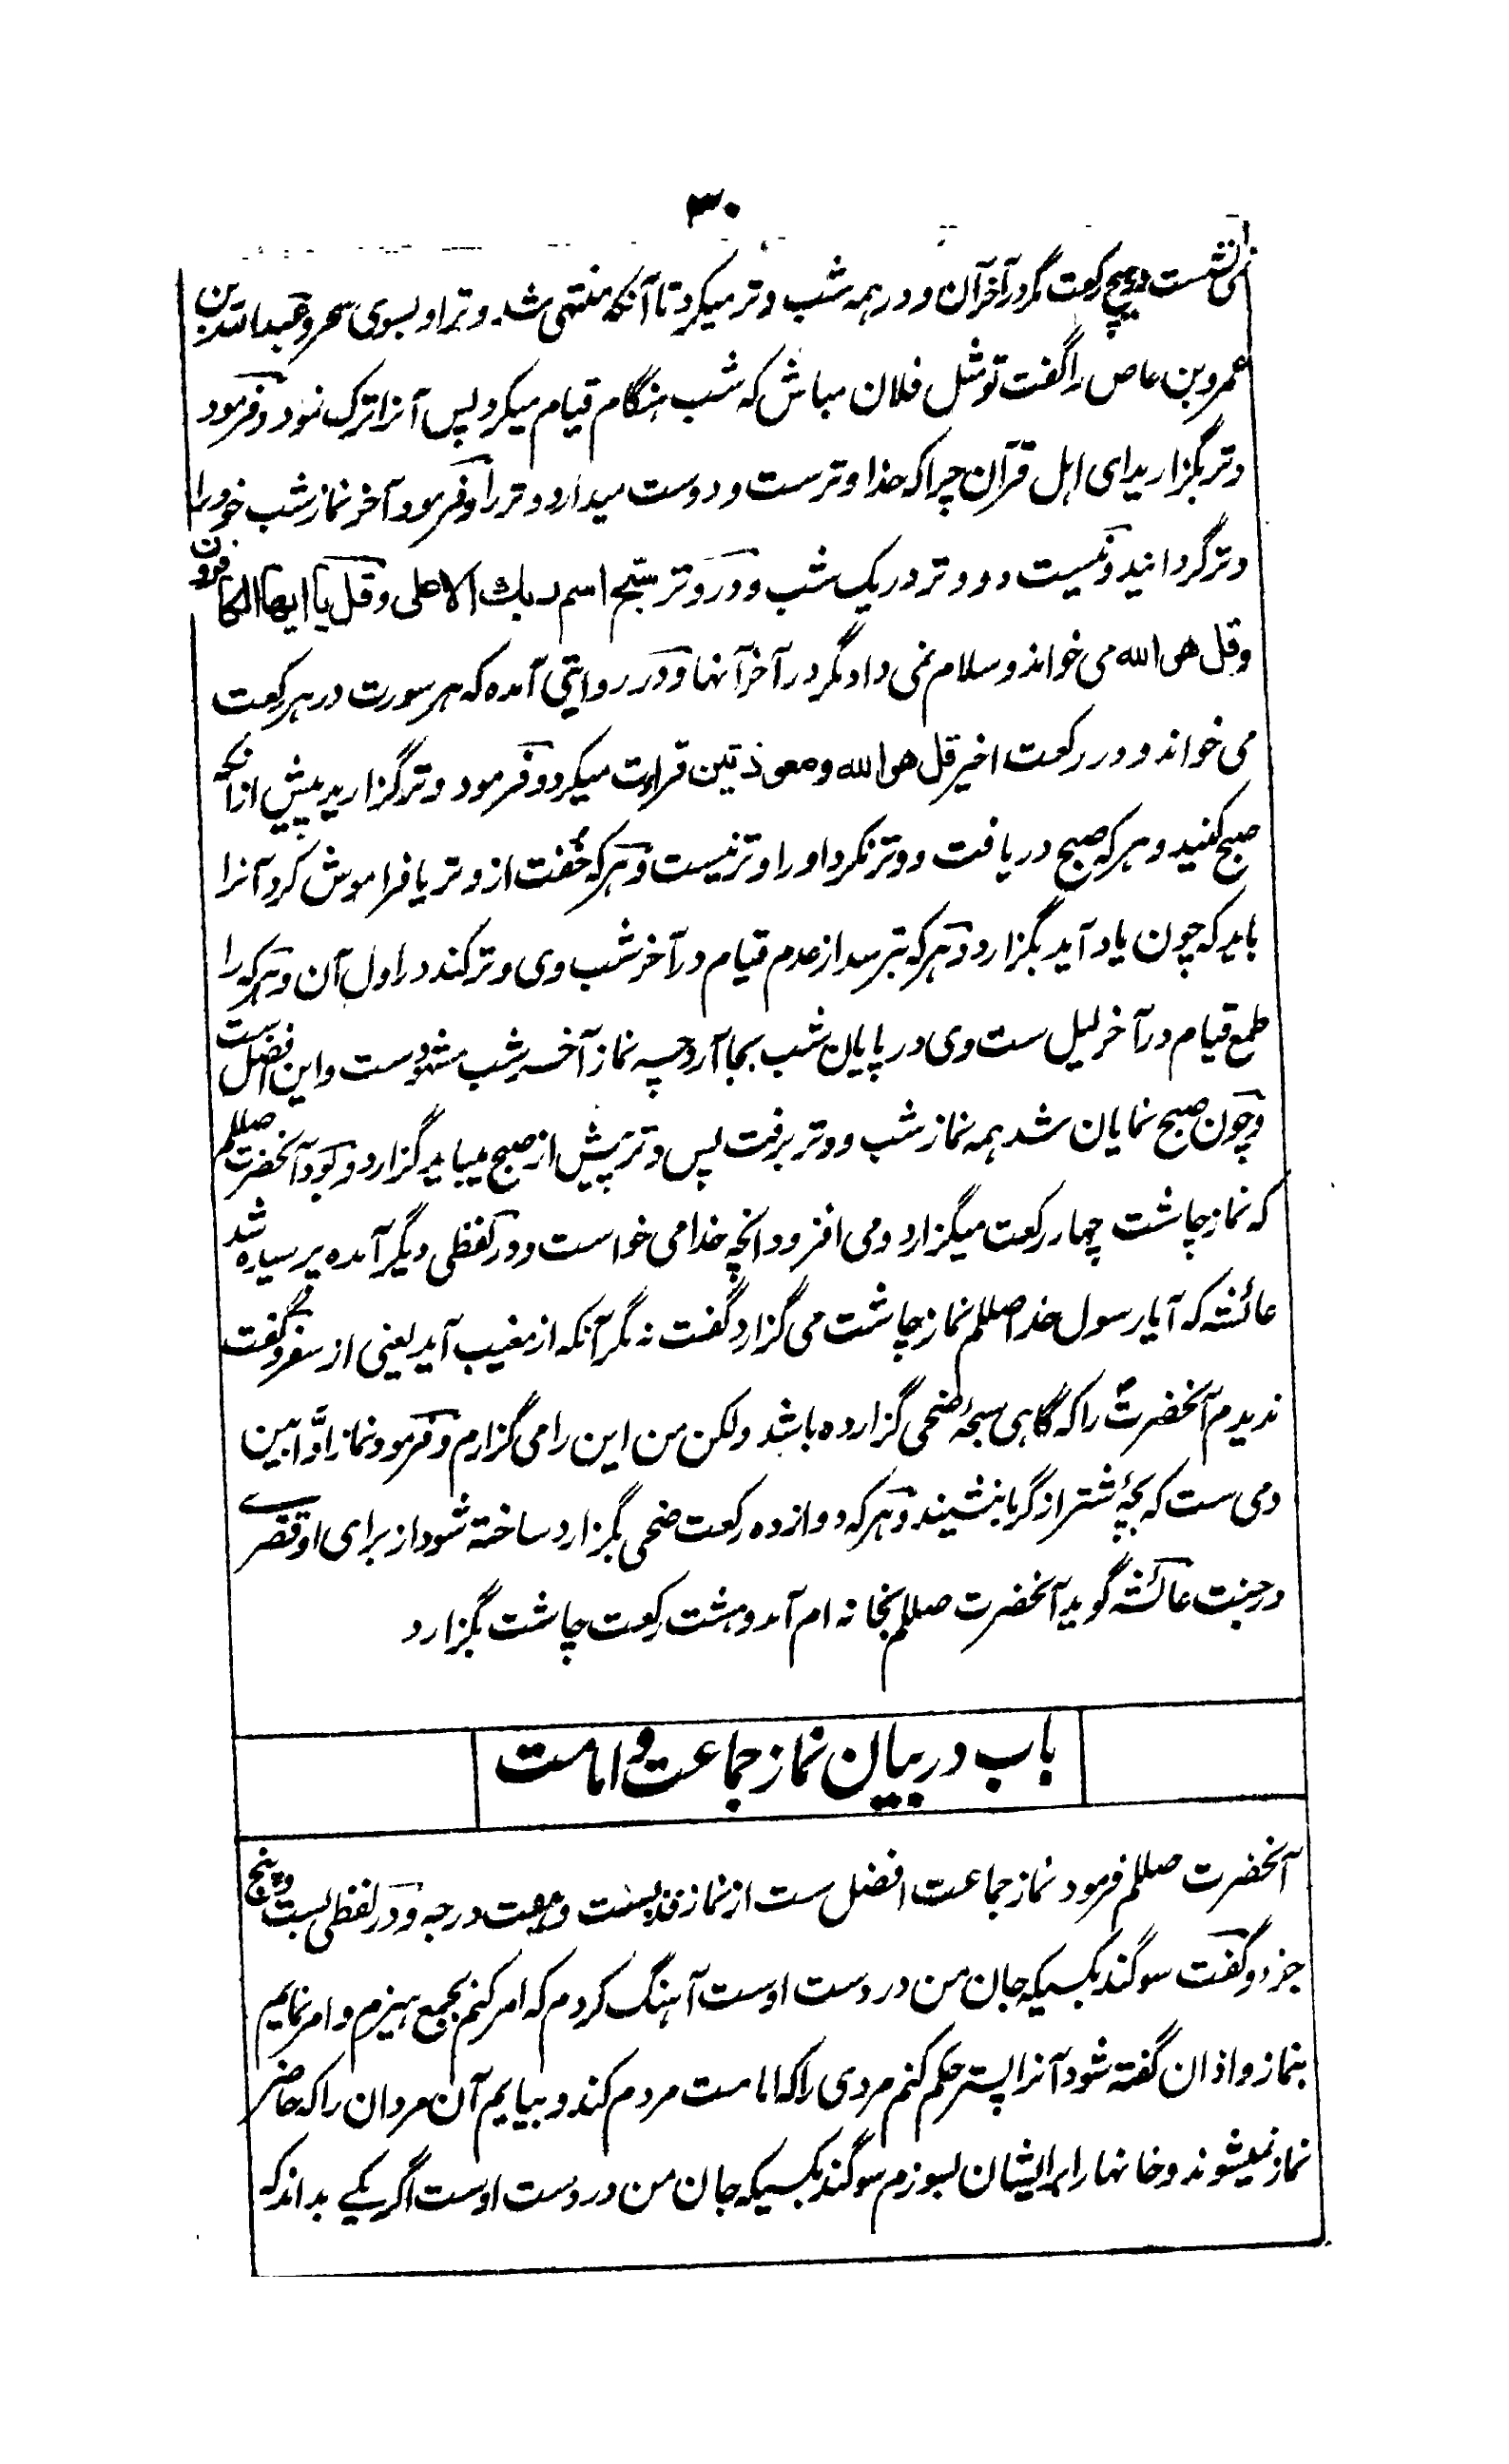 ۳۰
نمی نشست در هیچ رکعت مگر در آخر آن و در همه شب وتر میکرد تا آنکه منتهی شد وتر او بسوی سحر و عبدالله بن
عمرو بن عاص را گفت تو مثل فلان مباش که شب هنگام قیام میکرد پس آنرا ترک نمود و فرمود
وتر بگزارید ای اهل قرآن چرا که خدا وترست و دوست میدارد وتر را و فرمود آخر نماز شب خود را
وتر گردانید و نیست دو وتر در یک شب و در وتر سبح اسم ربك الاعلی و قل یا ایها الکافرون
و قل هو الله می خواند و سلام نمی داد مگر در آخر آنها و در روایتی آمده که هر سورت در هر رکعت
می خواند و در رکعت اخیر قل هو الله و معوذتین قراءت میکرد و فرمود وتر گزارید پیش از آنکه
صبح کنید و هر که صبح دریافت و وتر نکرد او را وتر نیست و هر که خُفت از وتر یا فراموش کرد آنرا
باید که چون یاد آید بگزارد و هر که بترسد از عدم قیام در آخر شب وی وتر کند در اول آن و هر که را
طمع قیام در آخر لیل ست وی در پایان شب بجا آرد چه نماز آخر شب مشهودست و این افضل ست
و چون صبح نمایان شد همه نماز شب و وتر برفت پس وتر پیش از صبح میباید گزارد و بود آنحضرت صللم
که نماز چاشت چهار رکعت میگزارد و می افزود انچه خدا می خواست و در لفظی دیگر آمده پرسیده شد
عائشه که آیا رسول خدا صللم نماز چاشت می گزارد گفت نه مگر آنکه از مغیب آید یعنی از سفر و گفت
ندیدم آنحضرت را که گاهی سبحهٔ ضحی گزارده باشد ولکن من این را می گزارم و فرمود نماز اوّابین
دمی ست که بچهٔ شتر از گرما بنشیند و هر که دوازده رکعت ضحی بگزارد ساخته شود از برای او قصرے
در جنت عائشه گوید آنحضرت صللم بخانه ام آمد و هشت رکعت چاشت بگزارد
باب در بیان نماز جماعت و امامت
آنحضرت صللم فرمود نماز جماعت افضل ست از نماز فذ ببست و هفت درجه و در لفظی بست و پنج
جزء و گفت سوگند بکسیکه جان من در دست اوست آهنگ کردم که امر کنم بجمع هیزم و امر نمایم
بنماز و اذان گفته شود آنرا پستر حکم کنم مردی را که امامت مردم کند و بیایم آن مردان را که حاضر
نماز نمیشوند و خانها را بر ایشان بسوزم سوگند بکسیکه جان من در دست اوست اگر یکے بداند که